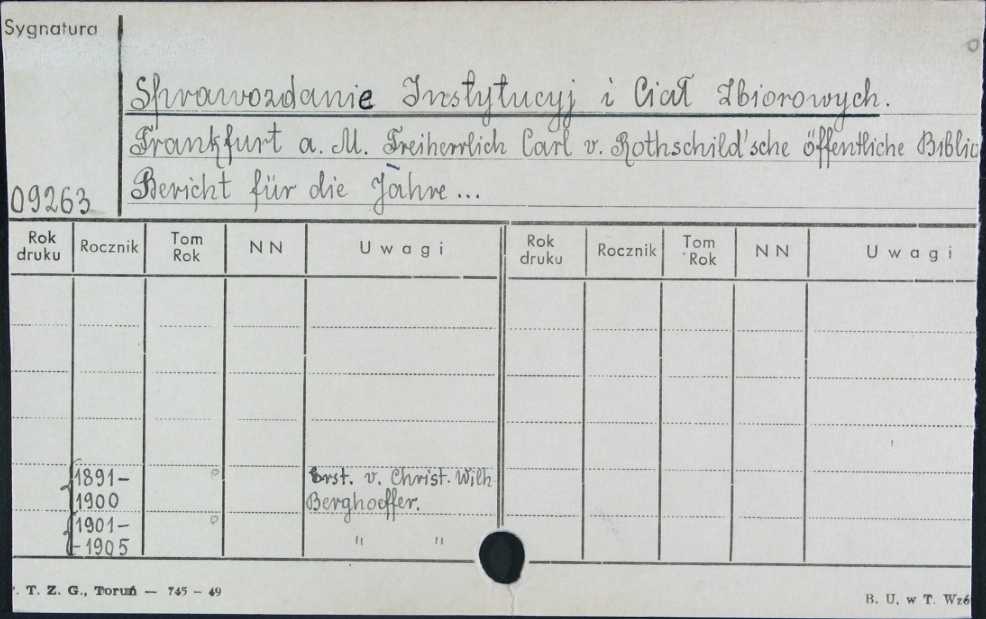 Sygnatura
Sprawozdanie Instytucyj i Ciał Zbiorowych.
Frankfurt a. M. Freiherrlich Carl v. Rothschild'sche öffentliche Biblio
Bericht für die Jahre...
09263
Rok druku Rocznik Tom Rok NN Uwagi Rok druku Rocznik Tom Rok NN Uwagi
1891- Erst. v. Christ. Wilh
1900 Berghoeffer.
1901- " "
-1905
. T. Z. G., Toruń — 745 - 49
B. U. w T. Wzó